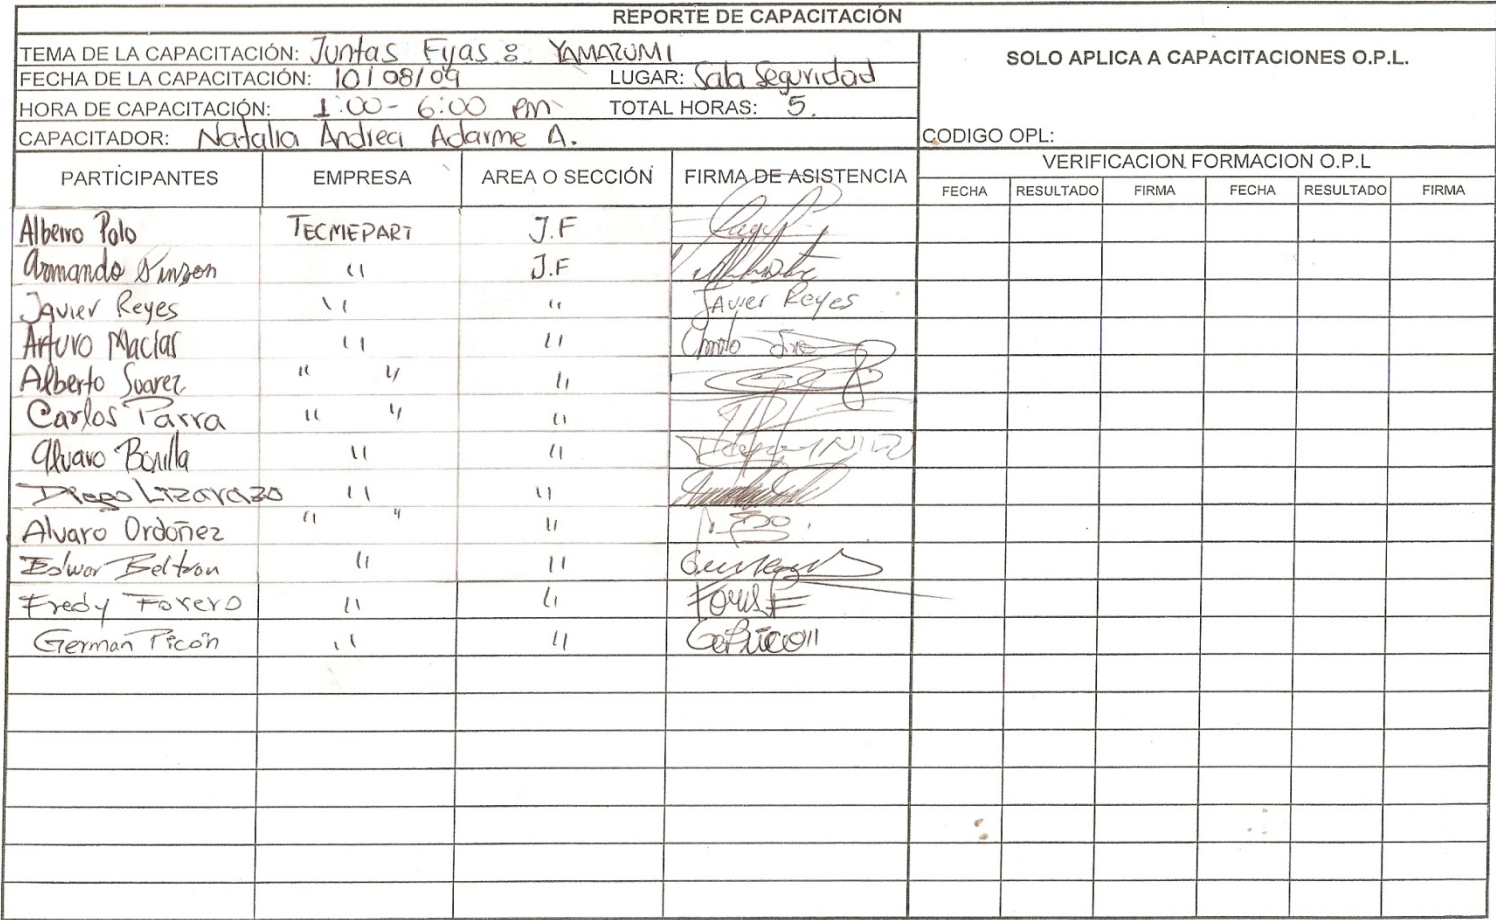 REPORTE DE CAPACITACIÓN
TEMA DE LA CAPACITACIÓN: Juntas Fijas : YAMAZUMI
SOLO APLICA A CAPACITACIONES O.P.L.
FECHA DE LA CAPACITACIÓN: 10/08/09 LUGAR: Sala Seguridad
HORA DE CAPACITACIÓN: 1:00 - 6:00 pm TOTAL HORAS: 5.
CAPACITADOR: Natalia Andrea Adarme A.
CODIGO OPL:
VERIFICACION FORMACION O.P.L
PARTICIPANTES EMPRESA AREA O SECCIÓN FIRMA DE ASISTENCIA
FECHA RESULTADO FIRMA FECHA RESULTADO FIRMA
Albeiro Polo TECMEPART J.F
Armando Pinzon " J.F
Javier Reyes " " Javier Reyes
Arturo Macias " "
Alberto Suarez " " "
Carlos Parra " " "
Alvaro Bonilla " "
Diego Lizarazo " "
Alvaro Ordoñez " " "
Edwar Beltran " "
Fredy Forero " "
German Picón " "